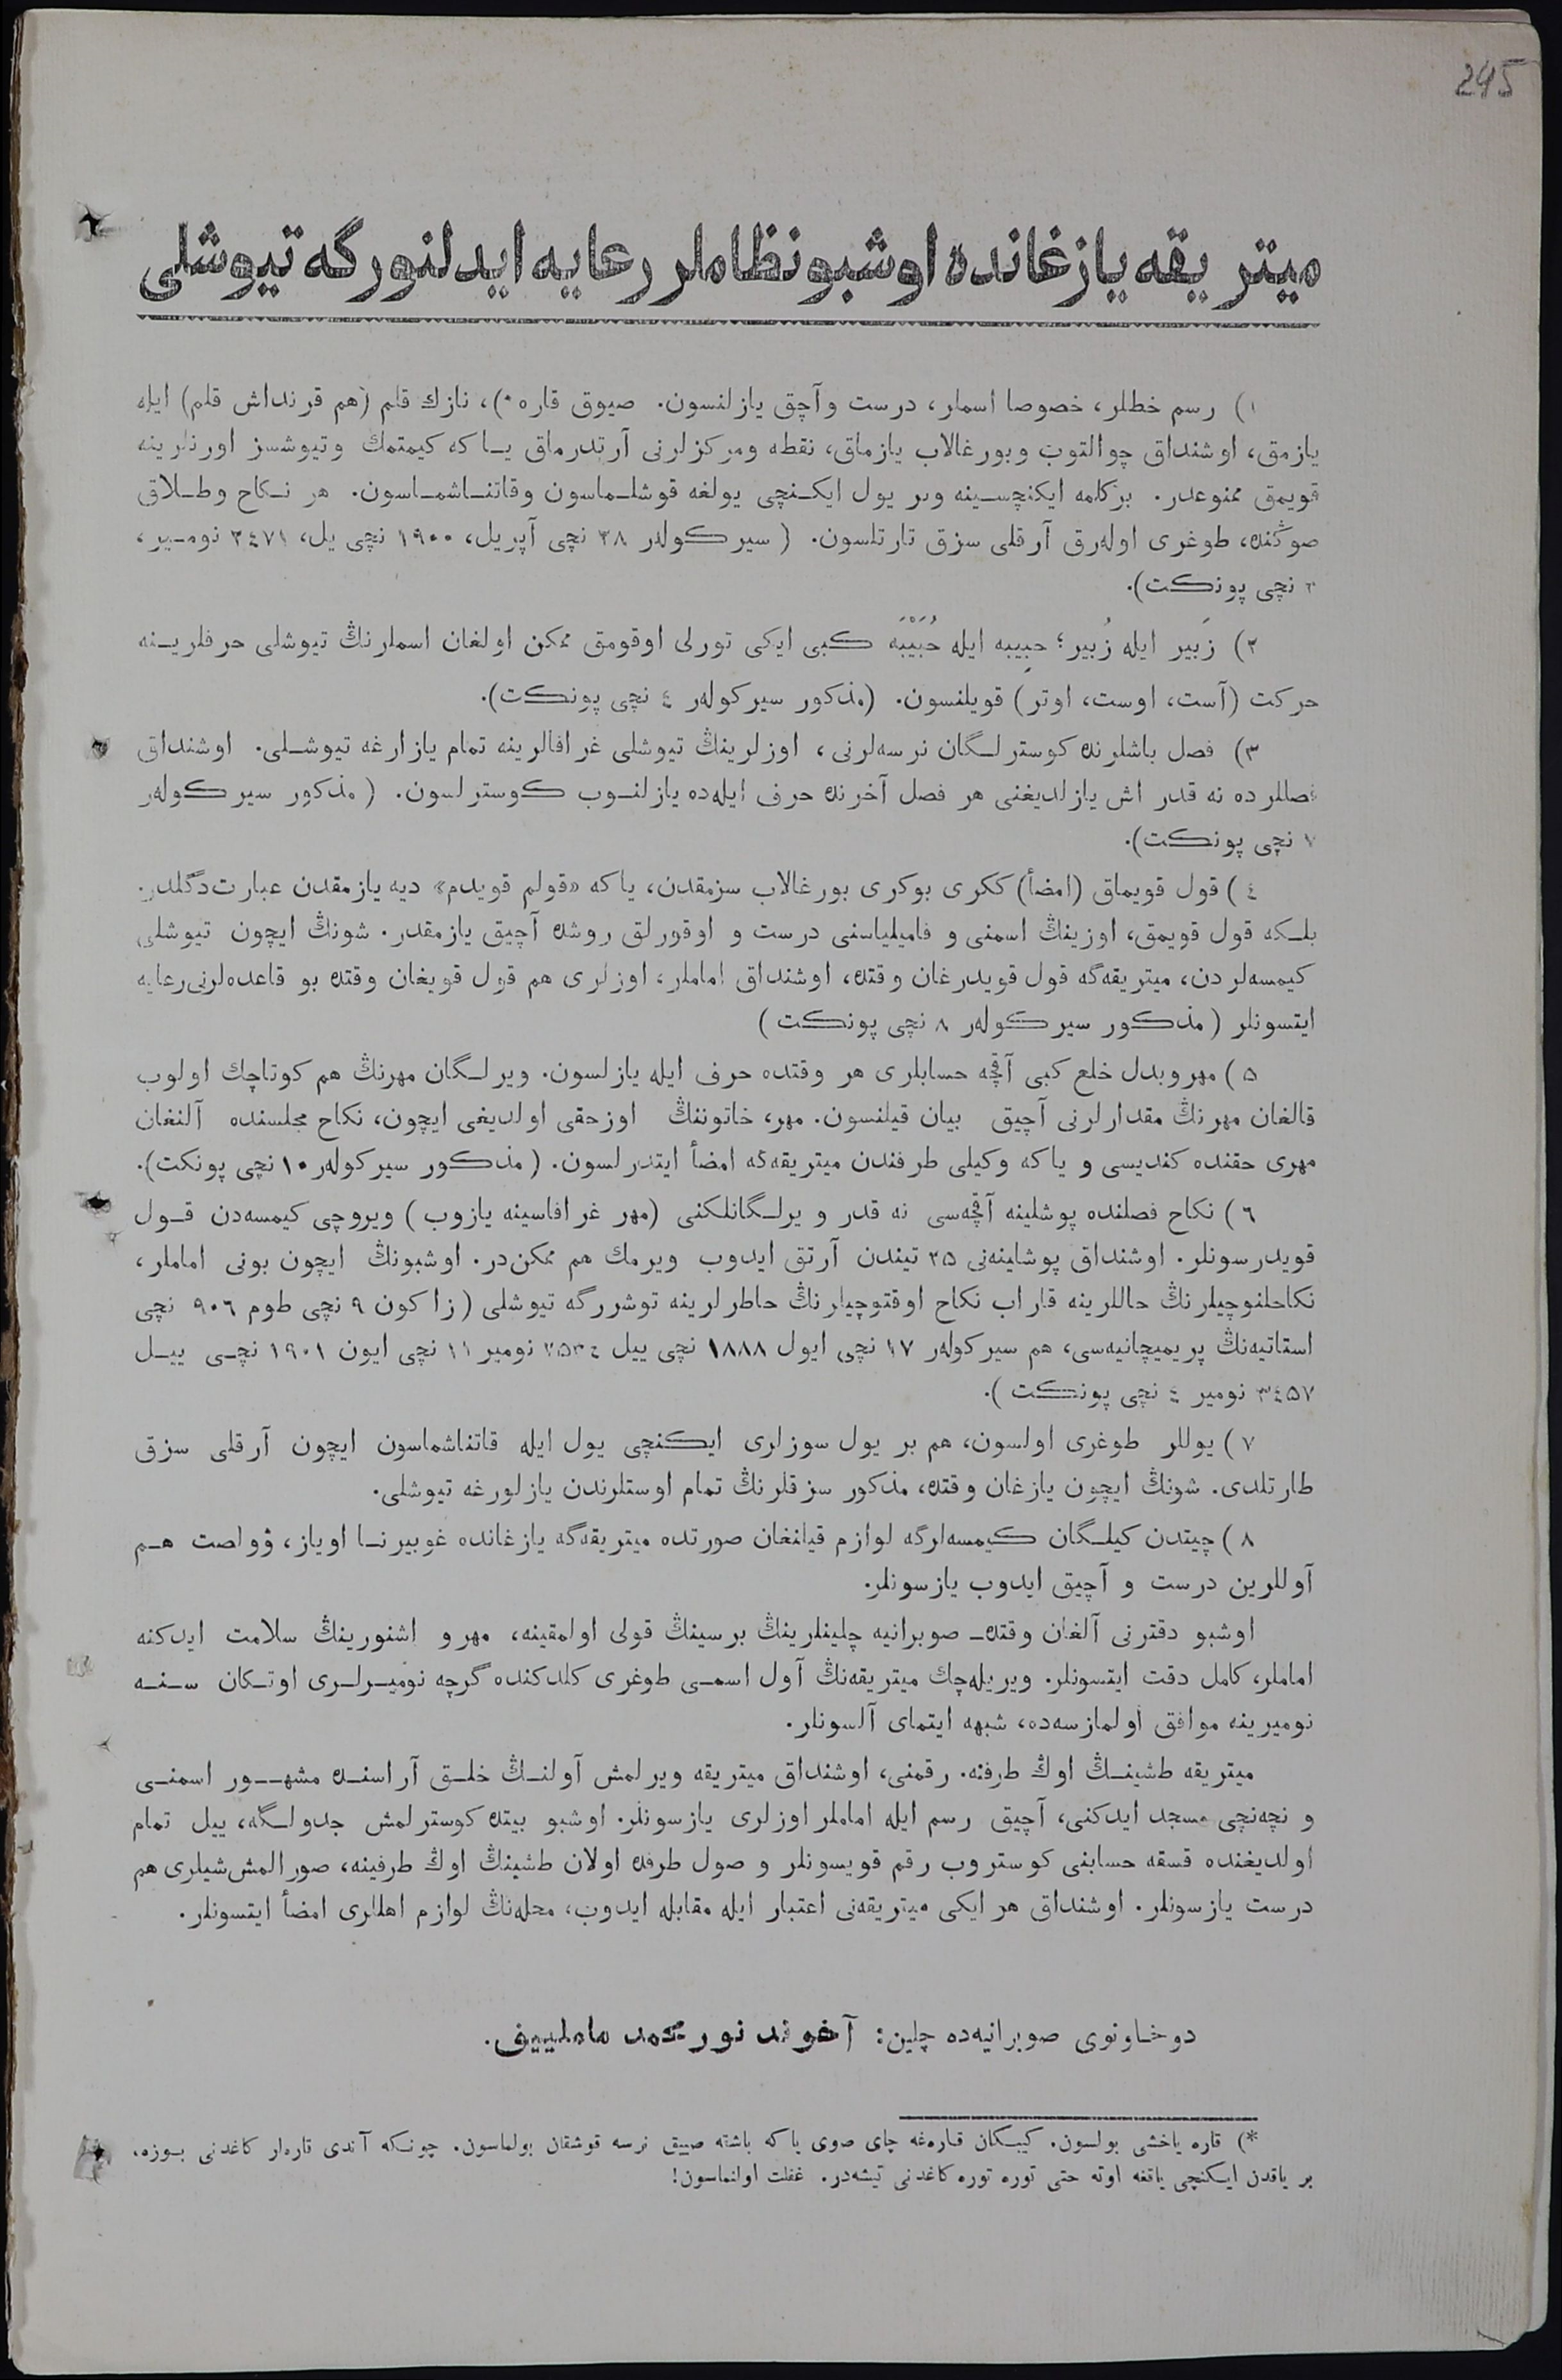 245
میتریقه یازغانده اوشبو نظاملر رعایه ایدلنورگه تیوشلی
۱) رسم خطلر، خصوصا اسملر، درست وآچق یازلنسون. صیوق قاره *)، نازك قلم (هم قرنداش قلم) ایله
یازمق، اوشنداق چوالتوب وبورغالاب یازماق، نقطه ومركزلرنی آرتدرماق یـاكه كیمتمك وتیوشسز اورنلرینه
قویمق ممنوعدر. بركلمه ایكنچسـینه وبر یول ایكـنچی یولغه قوشلـماسون وقاتنـاشمـاسون. هر نـكاح وطـلاق
صوڭنده، طوغری اولەرق آرقلی سزق تارتلسون. (سیركولەر ۲۸ نچی آپریل، ۱۹۰۰ نچی یل، ۲٤۷۱ نومـیر،
۲ نچی پونكت).
۲) زَبیر ایله زُبیر؛ حبِیبه ایله حُبَیْبَه كبی ایكی تورلی اوقومق ممكن اولغان اسملرنڭ تیوشلی حرفلریـنه
حركت (آست، اوست، اوتر) قویلنسون. (مذكور سیركولەر ٤ نچی پونكت).
۳) فصل باشلرنده كوسترلـگان نرسەلرنی، اوزلرینڭ تیوشلی غرافالرینه تمام یازارغه تیوشـلی. اوشنداق
فصللرده نه قدر اش یازلدیغنی هر فصل آخرنده حرف ایلەده یازلنـوب كوسترلسون. (مذكور سیركولەر
۷ نچی پونكت).
٤) قول قویماق (امضأ) ككری بوكری بورغالاب سزمقدن، یاكه «قولم قویدم» دیه یازمقدن عبارت دگلدر.
بلـكه قول قویمق، اوزینڭ اسمنی و فامیلیاسنی درست و اوقورلق روشده آچیق یازمقدر. شونڭ ایچون تیوشلی
كیمسەلردن، میتریقەگه قول قویدرغان وقتده، اوشنداق اماملر، اوزلری هم قول قویغان وقتده بو قاعدەلرنی رعایه
ایتسونلر (مذكور سیركولەر ۸ نچی پونكت)
۵) مهر وبدل خلع كبی آقچه حسابلری هر وقتده حرف ایله یازلسون. ویرلـگان مهرنڭ هم كوتاچك اولوب
قالغان مهرنڭ مقدارلرنی آچیق بیان قیلنسون. مهر، خاتوننڭ اوزحقی اولدیغی ایچون، نكاح مجلسنده آلنغان
مهری حقنده كندیسی و یاكه وكیلی طرفندن میتریقەگه امضأ ایتدرلسون. (مذكور سیركولەر ۱۰ نچی پونكت).
٦) نكاح فصلنده پوشلینه آقچەسی نه قدر ویرلـگانلكنی (مهر غرافاسینه یازوب) ویروچی كیمسەدن قـول
قویدرسونلر. اوشنداق پوشلینەنی ۲۵ تیندن آرتق ایدوب ویرمك هم ممكن در. اوشبونڭ ایچون بونی اماملر،
نكاحلنوچیلرنڭ حاللرینه قاراب نكاح اوقتوچیلرنڭ خاطرلرینه توشررگه تیوشلی (زاكون ۹ نچی طوم ۹۰٦ نچی
استاتیەنڭ پریمیچانیەسی، هم سیركولەر ۱۷ نچی ایول ۱۸۸۸ نچی ییل ۲۵۳٤ نومیر ۱۱ نچی ایون ۱۹۰۱ نچـی ییـل
۳٤۵۷ نومیر ٤ نچی پونكت).
۷) یوللر طوغری اولسون، هم بر یول سوزلری ایكنچی یول ایله قاتناشماسون ایچون آرقلی سزق
طارتلدی. شونڭ ایچون یازغان وقتده، مذكور سزقلرنڭ تمام اوستلرندن یازلورغه تیوشلی.
۸) چیتدن كیلـگان كیمسەلرگه لوازم قیلنغان صورتده میتریقەگه یازغانده غوبیرنـا اویاز، ۋولصت هـم
آوللرین درست و آچیق ایدوب یازسونلر.
اوشبو دفترنی آلغان وقتده صوبرانیه چلینلرینڭ برسینڭ قولی اولمقینه، مهر و اشنورینڭ سلامت ایدكنه
اماملر، كامل دقت ایتسونلر. ویریلەچك میتریقەنڭ آول اسمـی طوغری كلدكنده گرچه نومیـرلـری اوتـكان سـنـه
نومیرینه موافق اولمازسەده، شبهه ایتمای آلسونلر.
میتریقه طشینـڭ اوڭ طرفنه. رقمنی، اوشنداق میتریقه ویرلمش آولنـڭ خلـق آراسنـده مشهـور اسمنـی
و نچەنچی مسجد ایدكنی، آچیق رسم ایله اماملر اوزلری یازسونلر. اوشبو بیتده كوسترلمش جدولـگه، ییل تمام
اولدیغنده قسقه حسابنی كوستروب رقم قویسونلر و صول طرفده اولان طشینڭ اوڭ طرفینه، صورالمش شیلری هم
درست یازسونلر. اوشنداق هر ایكی میتریقەنی اعتبار ایله مقابله ایدوب، محلەنڭ لوازم اهللری امضأ ایتسونلر.
دوخـاونوی صوبرانیەده چلین: آخوند نورمحمد ماملییف.
*) قاره یاخشی بولسون. كیبـكان قارەغه چای صوی یاكه باشته صییق نرسه قوشقان بولماسون. چونـكه آندی قارەلر كاغدنی بـوزه،
بر یاقدن ایـكنچی یاققه اوته حتی توره توره كاغدنی تیشەدر. غفلت اولنماسون!